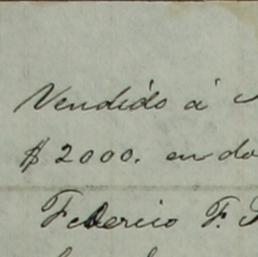 Vendido á
$2000. en do
Federico F.